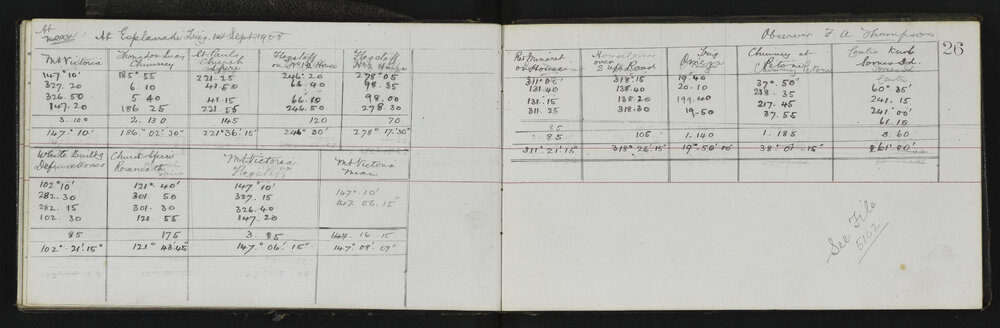 At noon At Esplanade Trig. 1st Sept 1908
Mt Victoria Chimney St Pauls Church Spire Flagstaff on No 1 & 2 House Flagstaff No 2 House
147° 10' 185° 55 221. 25 246. 20 278° 05
327. 20 6. 10 41. 50 66. 40 98. 35
326. 50 5 40 41. 15 66. 10 98. 00
147. 20 186 25 221. 55 246. 50 278. 30
3. 10" 2. 130 145 120 70
147° 10' 186° 02' 30" 221° 36' 15" 246° 30' 278° 17' 30"
White Building Church Spire Mt Victoria Flagstaff Mt Victoria Mean
102° 10' 121° 40' 147° 10' 147° 10'
282. 30 301 50 327. 15 147 06. 15"
282. 15 301. 30 326. 40
102. 30 121. 55 147. 20
85 175 3. 85 147. 16 15
102° 21' 15" 121° 43' 45" 147° 06' 15" 147° 08' 07"
Observer F. A. Thompson
26
Minaret on House over 2 Trig Omega Chimney at Petone Centre Kurb Somes Id.
311° 05' 318° 15' 19. 40 37° 50' 60° 35'
131. 40 138. 40 20. 10 218. 35 241. 15
131. 15 138. 20 199. 40 217. 45 241° 00'
311. 25 318. 30 19. 50 37. 55 61. 10
85 105 1. 140 1. 185 3. 60
311° 21' 15" 318° 26' 15" 19° 50' 00" 38° 01' 15" 61° 00'
See File
5162